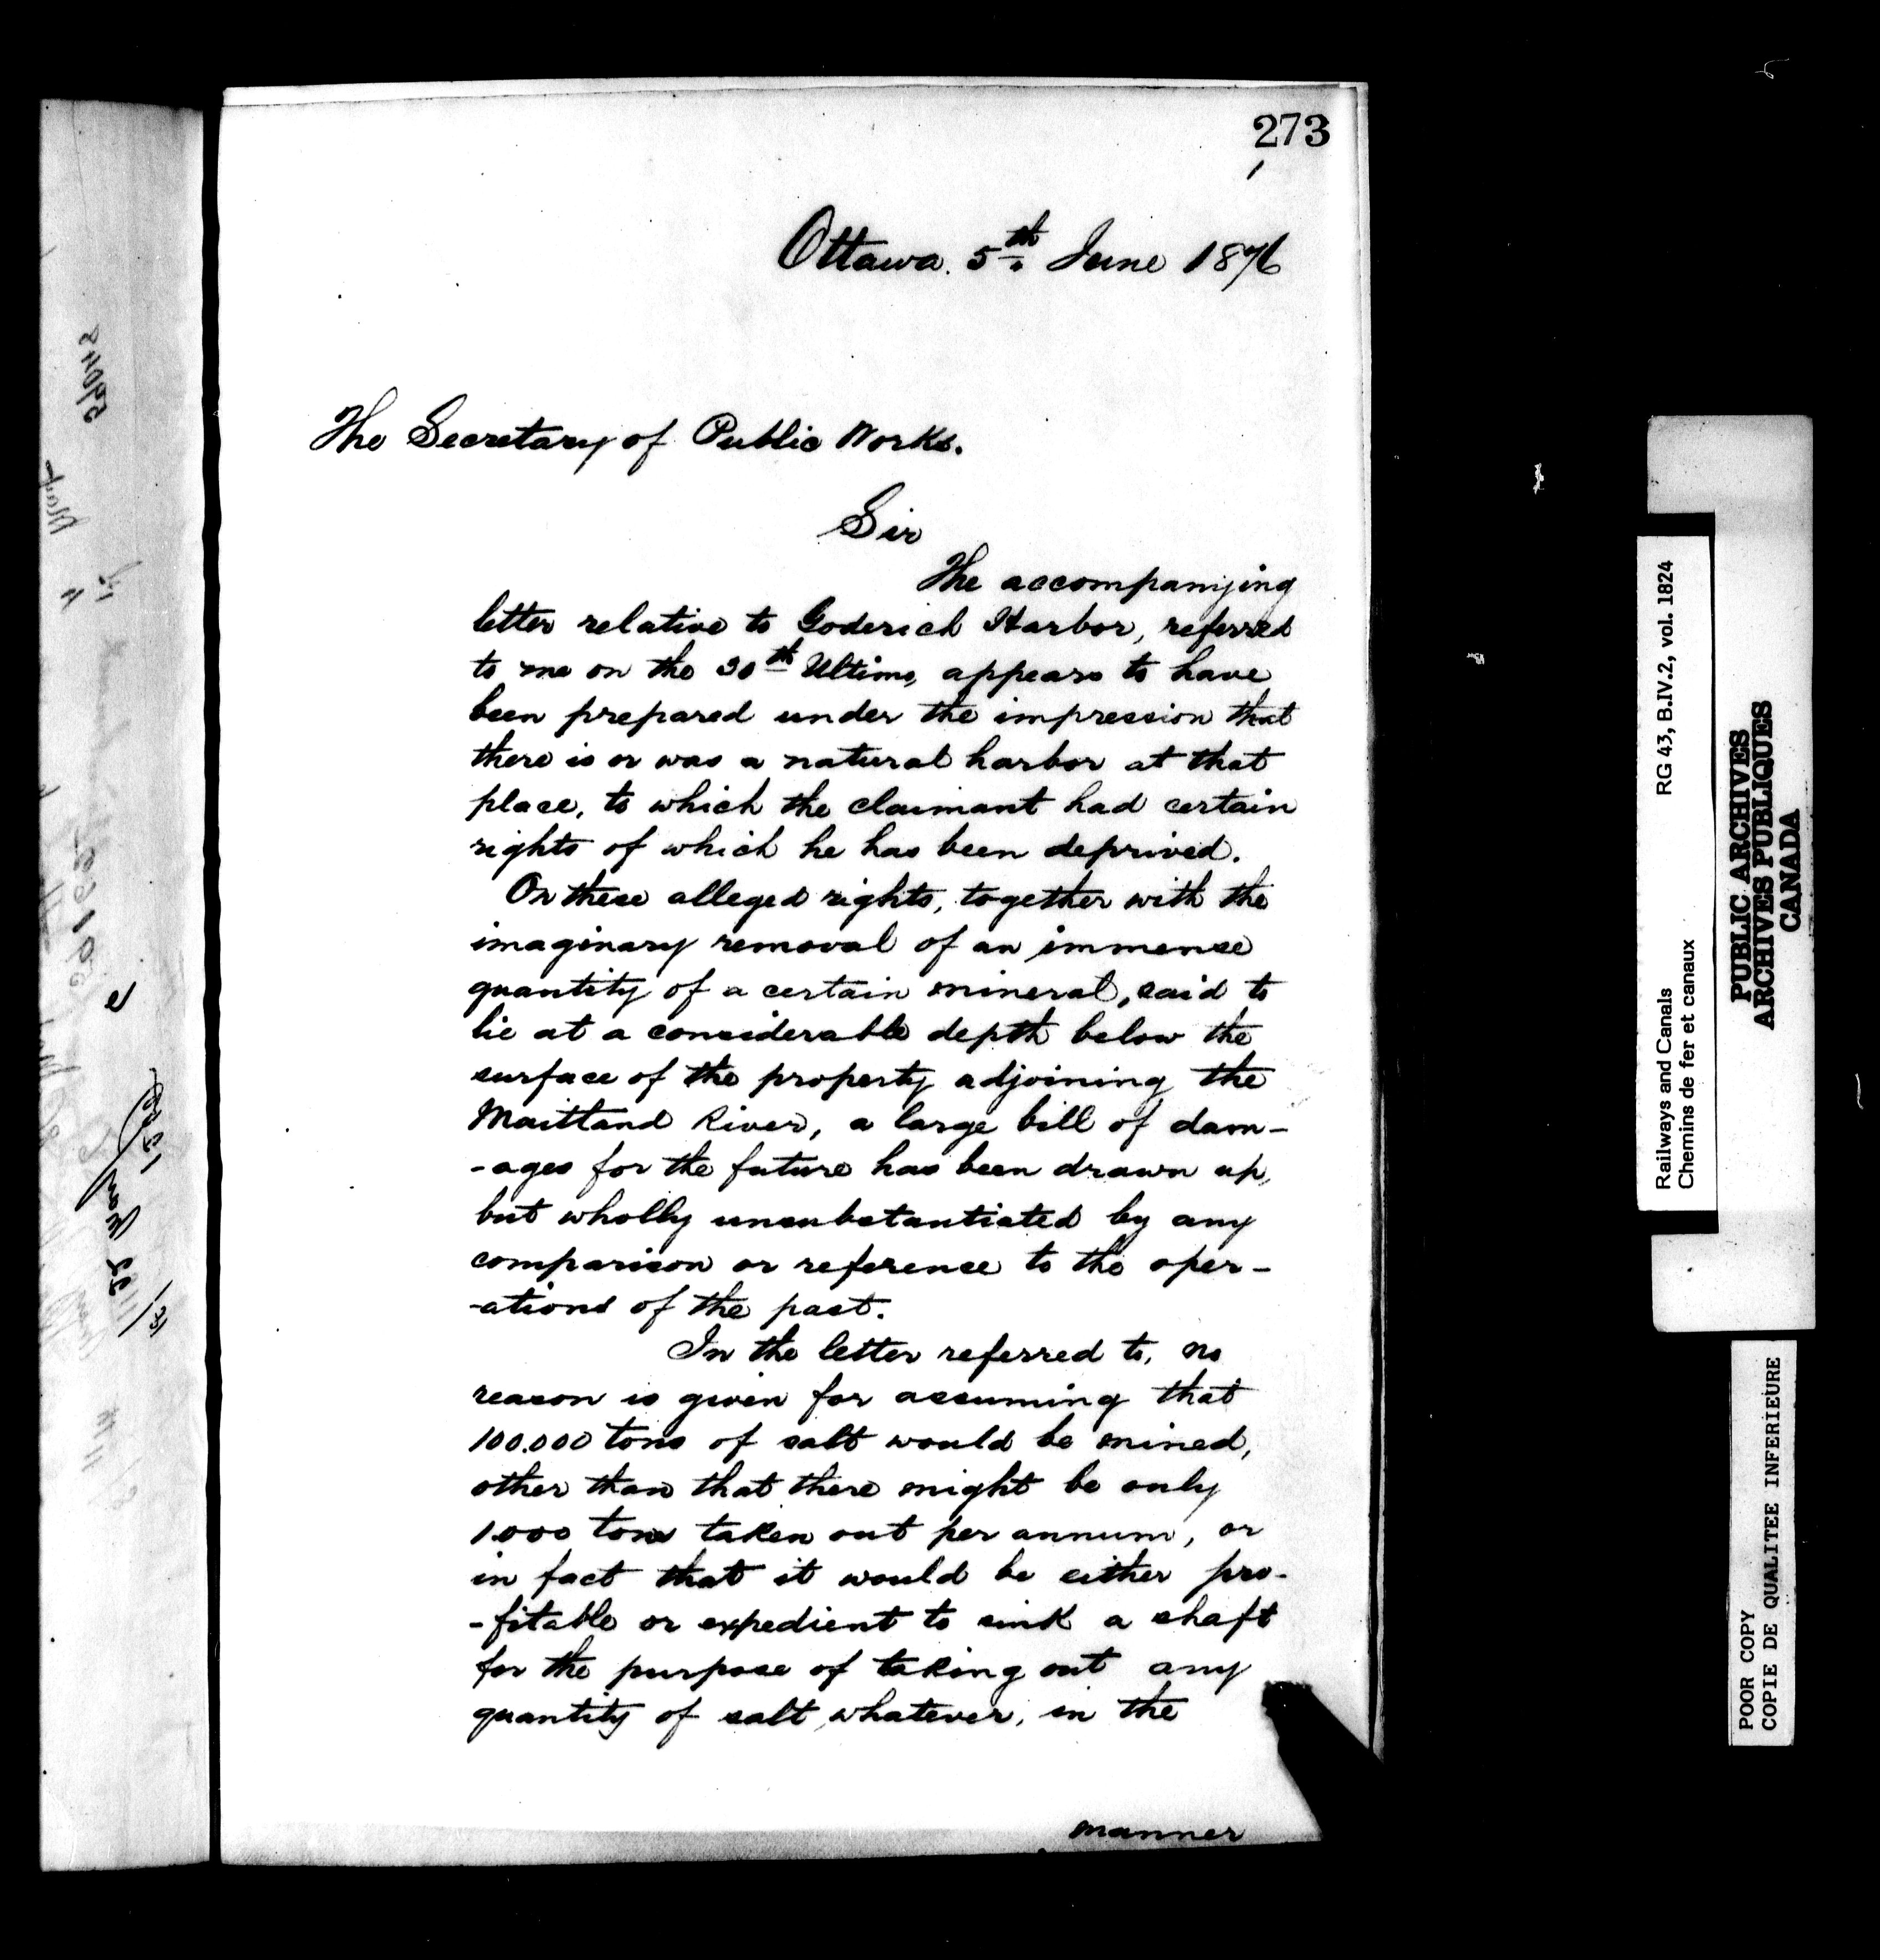 273
Ottawa. 5th June 1876
The Secretary of Public Works.
Sir
The accompanying
letter relative to Goderich Harbor, referred
to me on the 30th Ultimo, appears to have
been prepared under the impression that
there is or was a natural harbor at that
place, to which the claimant had certain
rights of which he has been deprived.
On these alleged rights, together with the
imaginary removal of an immense
quantity of a certain mineral, said to
lie at a considerable depth below the
surface of the property adjoining the
Maitland River, a large bill of dam-
-ages for the future has been drawn up,
but wholly unsubstantiated by any
comparison or reference to the oper-
-ations of the past.
In the letter referred to, no
reason is given for assuming that
100.000 tons of salt would be mined,
other than that there might be only
1.000 tons taken out per annum, or
in fact that it would be either pro-
-fitable or expedient to sink a shaft
for the purpose of taking out any
quantity of salt whatever, in the
manner
Railways and Canals RG 43, B.IV.2, vol. 1824
Chemins de fer et canaux
PUBLIC ARCHIVES
ARCHIVES PUBLIQUES
CANADA
POOR COPY
COPIE DE QUALITEE INFERIEURE